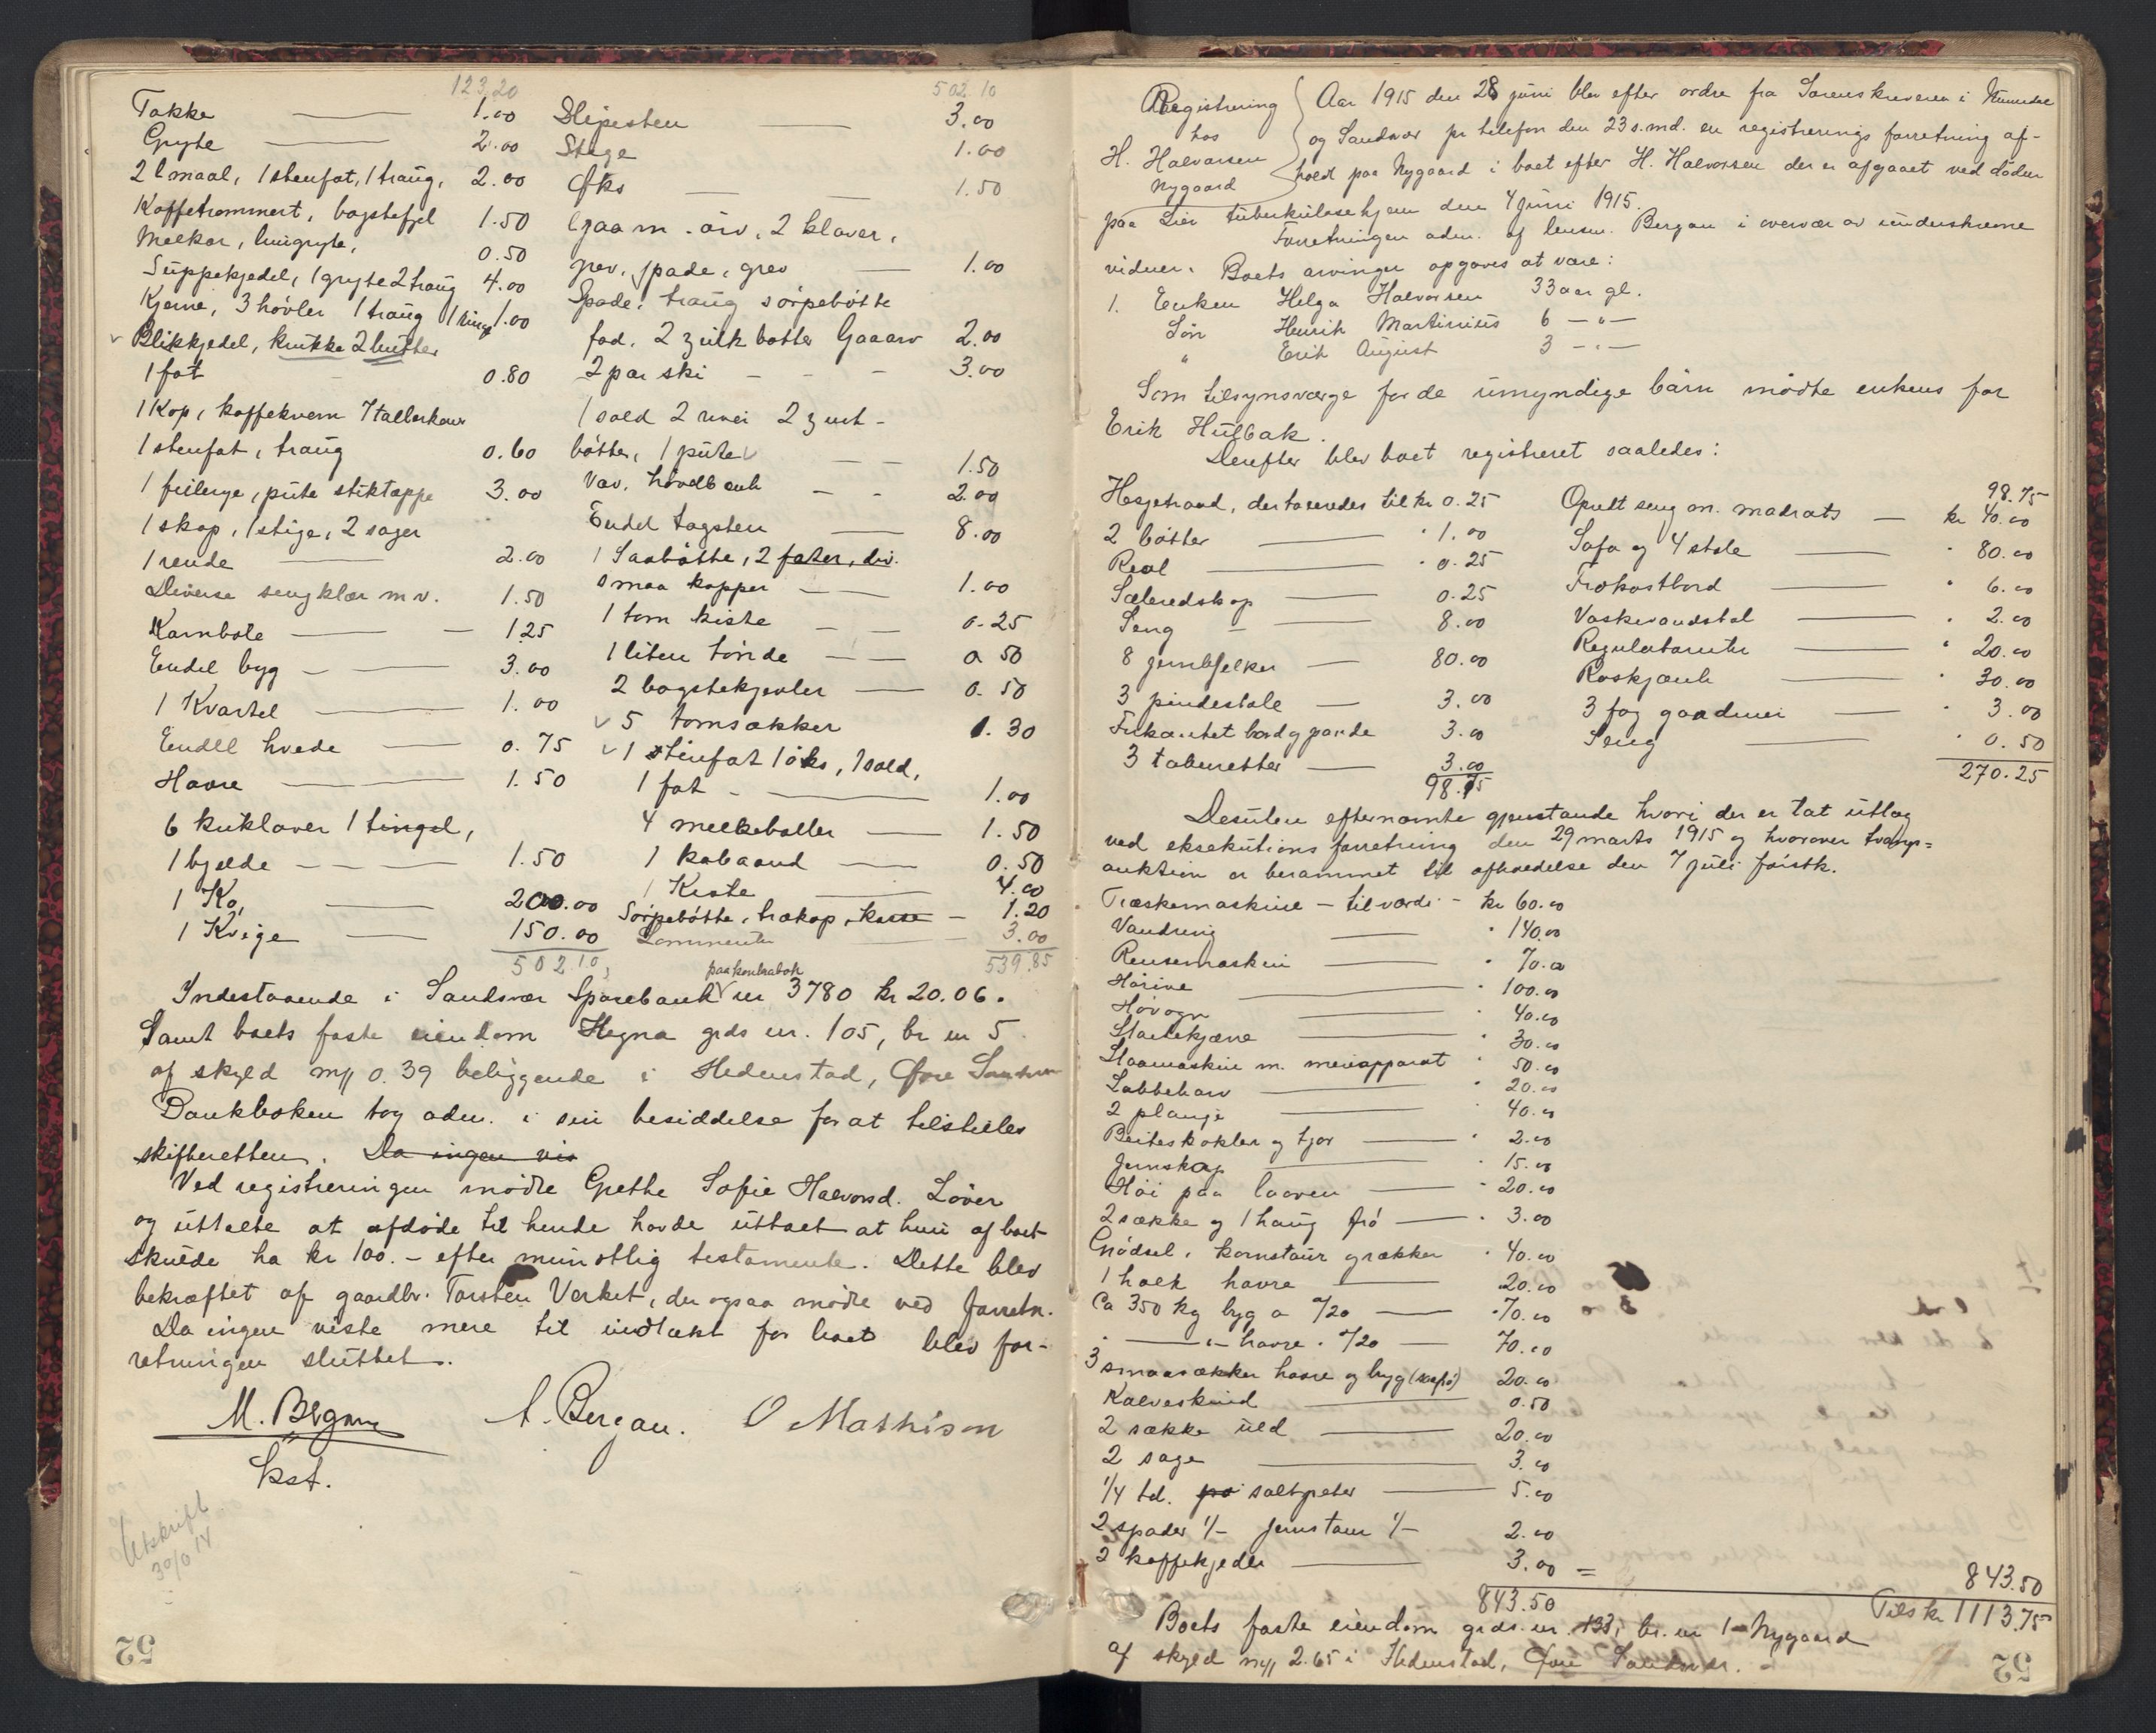 123,20
Takke 1.00
Gryte 2.00
2 l maal, 1 stenfat, 1 traug, 2.00
Kaffetrommert, bagstefjel 1.50
Melkar, limgryte, 0.50
Suppekjedel, 1 gryte 2 traug 4.00
Kjerne, 3 høvler 1 traug 1 ring 1.00
Blikkjedel, krukke 2 butter
1 fat 0.80
1 Kop, kaffekvern 7 tallerkener
1 stenfat, traug 0.60
1 feilerye, pute stiktæppe 3.00
1 skap, 1 stige, 2 sager
1 rende 2.00
Diverse sengklær m v. 1.50
Kornbøle 1.25
Endel byg 3.00
1 Kvartel 1.00
Endel hvede 0.75
Havre 1.50
6 kuklaver 1 tingel,
1 bjelde 1.50
1 Ko, 200.00
1 Kvige 150.00
502 10
502.10
Slipesten 3.00
Stige 1.00
Øks 1.50
Ljaa m. orv, 2 klaver,
grev, spade, grev 1.00
Spade, traug sørpebøtte
fad, 2 zink bøtter Ljaaorv 2.00
2 par ski 3.00
1 sold 2 river 2 zink-
bøtter, 1 pute 1.50
Væv, høvelbenk 2.00
Endel tagsten 8.00
1 Saabøtte, 2 fater, div.
smaa kopper 1.00
1 tom kiste 0.25
1 liten tønde 0 50
2 bagstekjevler 0.50
5 tomsækker 1.30
1 stenfat 1 øks, 1 sold,
1 fat 1.00
4 melkeboller 1.50
1 kobaand 0.50
1 Kiste 4.00
Sørpebøtte, trækop, kasse 1.20
Lommeur 3.00
539.85
Indestaaende i Sandsvær Sparebank paa kontrabok nr 3780 kr 20.06.
Samt boets faste eiendom Hegna grds nr. 105, br nr 5
af skyld mrk 0.39 beliggende i Hedenstad, Øvre Sandsvær
Bankboken tog adm. i sin besiddelse for at tilstilles
skifteretten. Da ingen vis
Ved registreringen mødte Grethe Sofie Halvorsd. Løver
og uttalte at afdøde til hende havde uttalt at hun af boet
skulde ha kr 100.- efter mundtlig testamente. Dette blev
bekræftet af gaardbr. Torsten Verket, der ogsaa mødte ved forretn.
Da ingen viste mere til indtækt for boet blev for-
retningen sluttet.
M. Bergan A. Bergan. O Mathison
kst.
Utskrift
52
Registrering
hos
H. Halvorsen
Nygaard
Aar 1915 den 28 juni blev efter ordre fra Sorenskriveren i Numedal
og Sandsvær pr telefon den 23 s.md. en registrerings forretning af-
holdt paa Nygaard i boet efter H. Halvorsen der er afgaaet ved døden
paa Lier tuberkulosehjem den 4 juni 1915.
Forretningen adm. af lensm. Bergan i overvær av underskrevne
vidner. Boets arvinger opgaves at være:
1. Enken Helga Halvorsen 33 aar gl.
Søn Henrik Martinius 6 — " —
" Erik August 3 — " —
Som tilsynsværge for de umyndige barn mødte enkens far
Erik Hulbak.
Derefter blev boet registreret saaledes:
Hesjetraad, der taxeredes til kr 0.25
2 bøtter 1.00
Reol 0.25
Sæleredskap 0.25
Seng 8.00
8 jernbjelker 80.00
3 pindestole 3.00
Firkantet bord og pande 3.00
3 taburetter 3.00
98.75
98.75
Opredt seng m. madrats kr 40.00
Sofa og 4 stole 80.00
Frokostbord 6.00
Vaskevandstol 2.00
Regulatoruhr 20.00
Roskjænk 30.00
3 fag gardiner 3.00
Seng 0.50
270.25
Desuten efternævnte gjenstande hvori der er tat utlæg
ved eksekutions forretning den 29 marts 1915 og hvorover tvangs=
auktion er berammet til afholdelse den 7 juli førstk.
Træskemaskine - til værdi - kr 60.00
Vandring 140.00
Rensemaskin 70.00
Hørive 100.00
Høvogn 40.00
Staukekjærre 30.00
Slaamaskine m. meieapparat 50.00
Labbeharv 20.00
2 plauge 40.00
Beiteskokler og tjor 2.00
Jernskap 15.00
Høi paa laaven 20.00
2 sække og 1 haug frø 3.00
Gjødsel, kornstaur og rækker 40.00
1 hæk havre 20.00
Ca 350 kg byg a /20 70.00
" — " — havre " /20 70.00
3 smaasækker havre og byg (saafrø) 20.00
Kalveskind 0.50
2 sække uld 20.00
2 sage 3.00
1/4 td. saltpeter 5.00
2 spader 1/- Jernstaur 1/- 2.00
2 kaffekjedler 3.00 = 843.50
843.50 Tils kr 1113.75
Boets faste eiendom grds. nr. 133, br. nr 1 - Nygaard
af skyld mrk 2.65 i Hedenstad, Øvre Sandsvær.
52